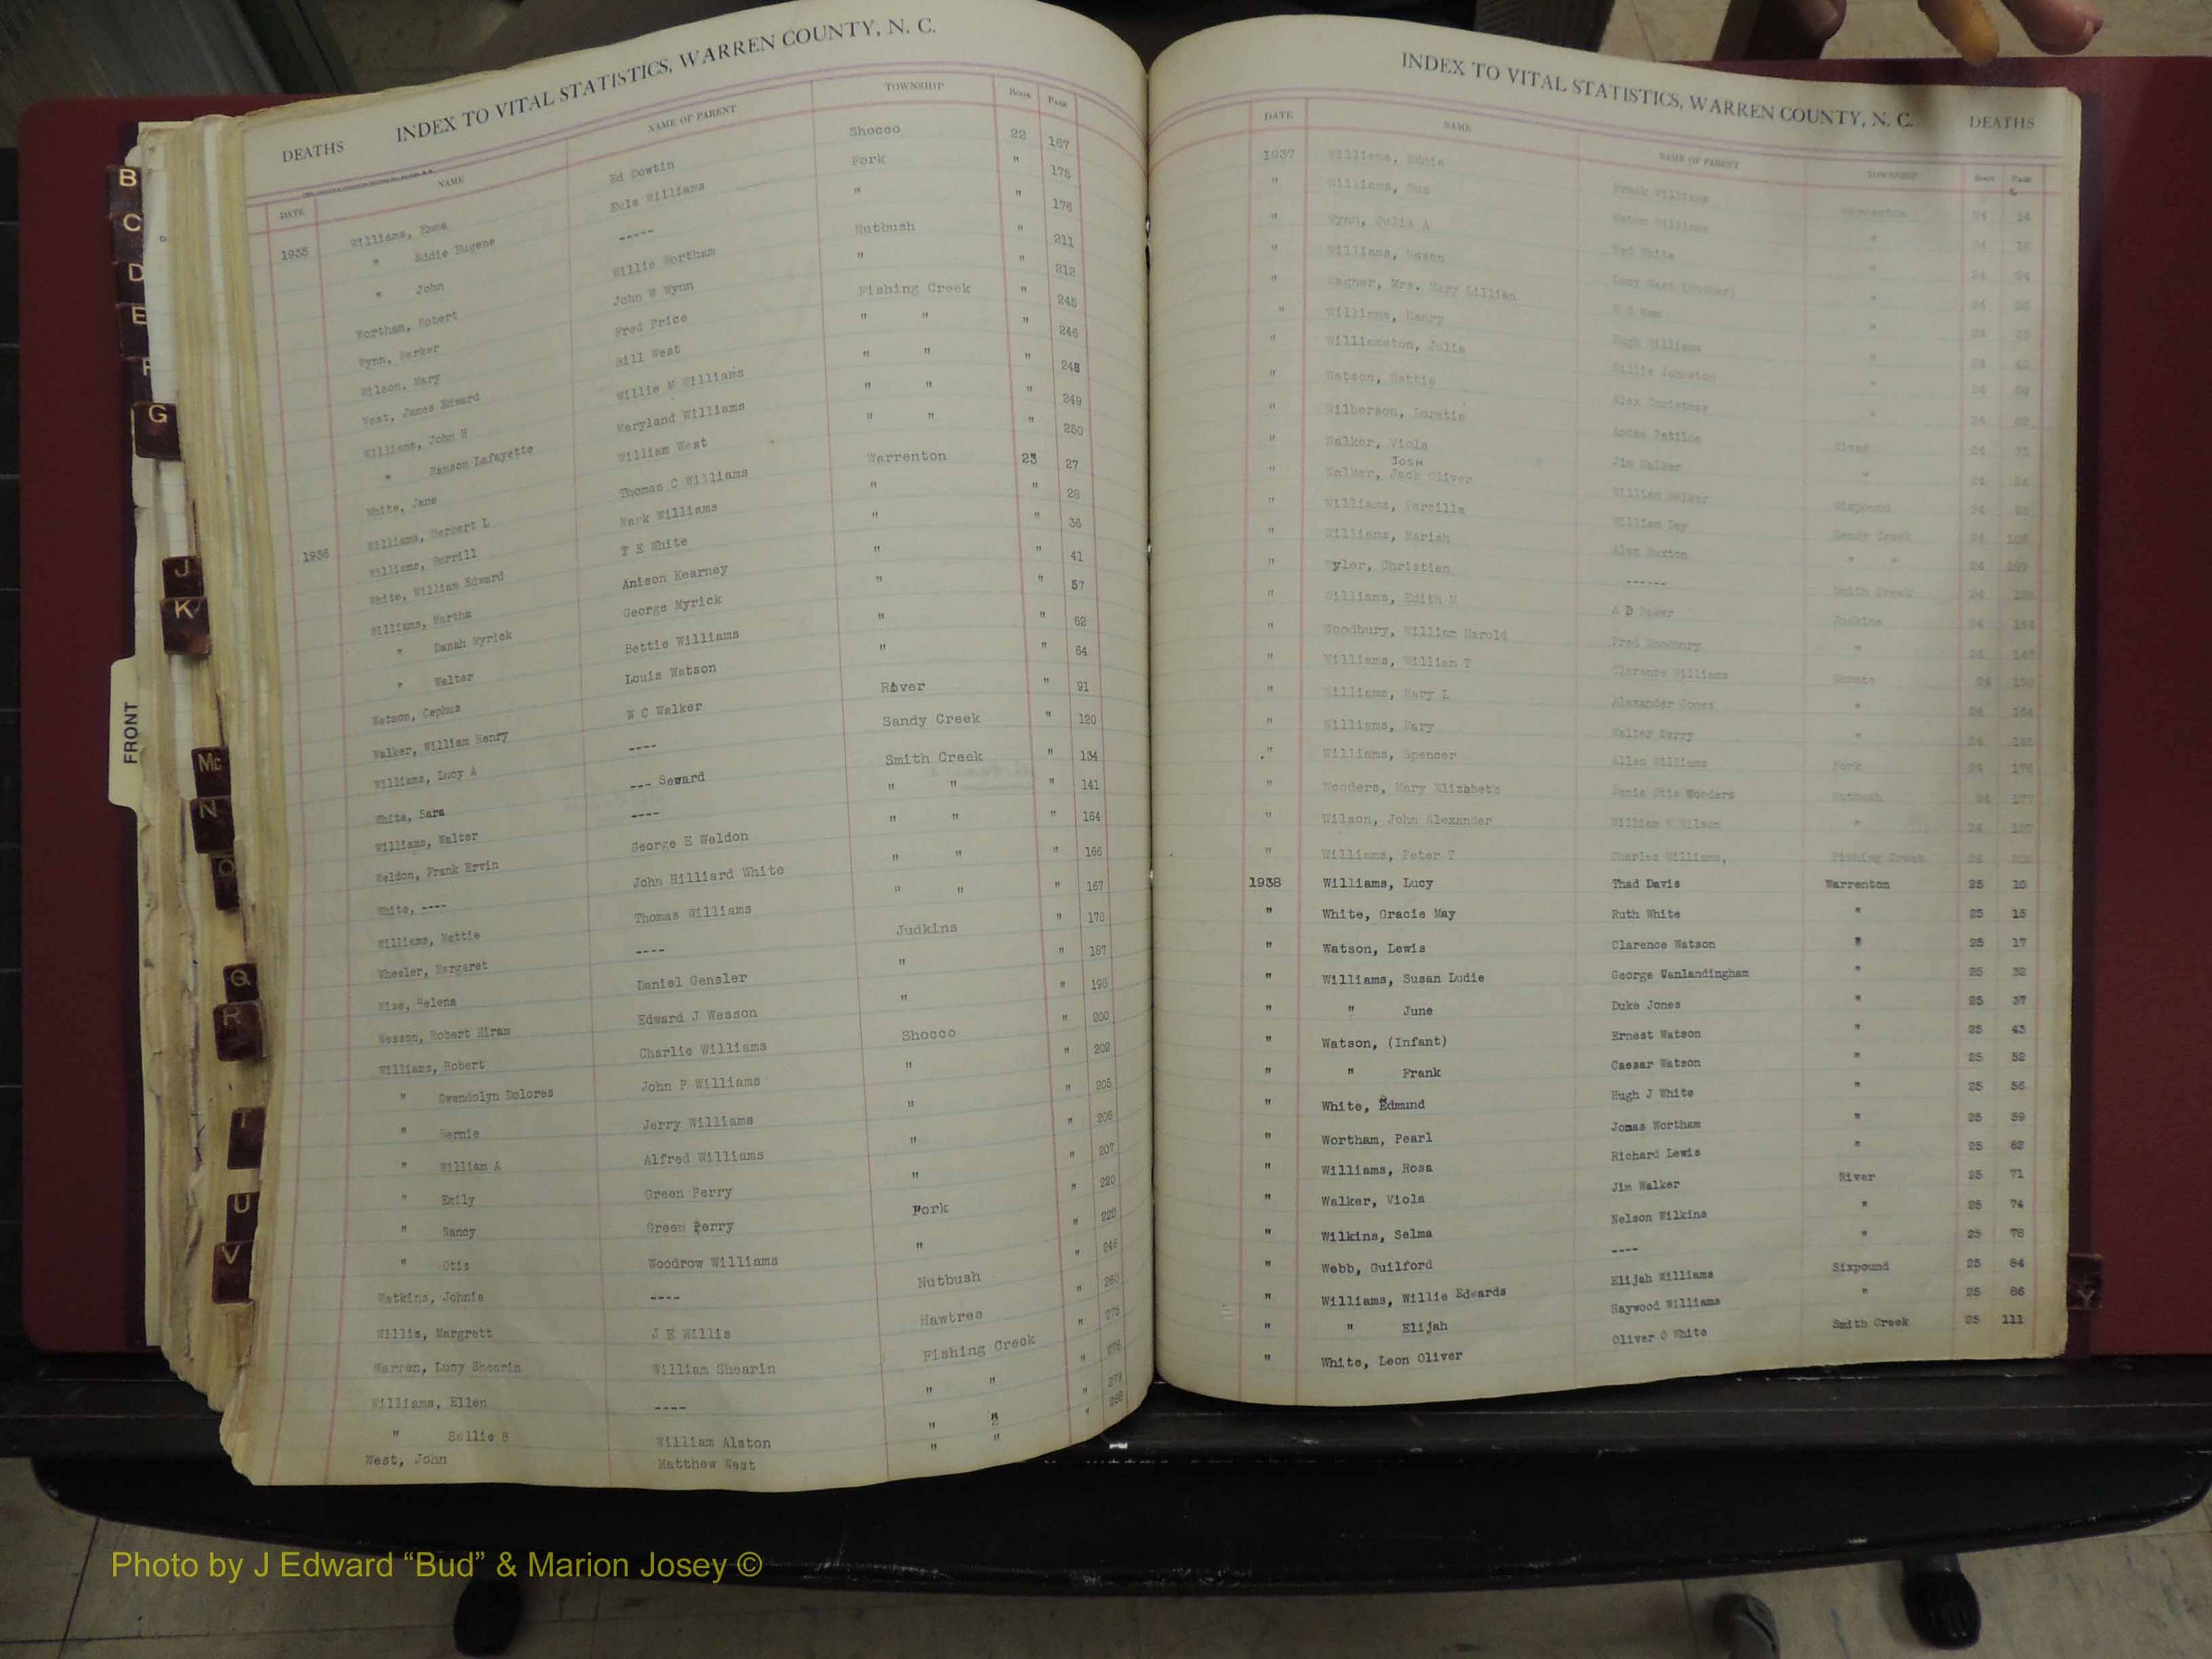 DEATHS INDEX TO VITAL STATISTICS, WARREN COUNTY, N. C.
DATE NAME NAME OF PARENT TOWNSHIP BOOK PAGE
1935 Williams, Emma Ed Dowtin Shocco 22 167
" Eddie Eugene Eula Williams Fork " 175
" John ----- " " 176
Wortham, Robert Willie Wortham Nutbush " 211
Wynn, Parker John W Wynn " " 212
Wilson, Mary Fred Price Fishing Creek " 245
West, James Edward Bill West " " " 246
Williams, John H Willie M Williams " " " 248
" Ransom Lafayette Maryland Williams " " " 249
White, Jane William West " " " 250
1936 Williams, Herbert L Thomas C Williams Warrenton 23 27
Williams, Burrill Mark Williams " " 28
White, William Edward T E White " " 36
Williams, Martha Anison Kearney " " 41
" Danah Myrick George Myrick " " 57
" Walter Bettie Williams " " 62
Watson, Cephus Louis Watson " " 64
Walker, William Henry W C Walker River " 91
Williams, Lucy A ---- Sandy Creek " 120
White, Sara --- Seward Smith Creek " 134
Williams, Walter ---- " " " 141
Weldon, Frank Ervin George E Weldon " " " 164
White, ---- John Hilliard White " " " 166
Williams, Mattie Thomas Williams " " " 167
Wheeler, Margaret ---- Judkins " 170
Wise, Helena Daniel Gensler " " 187
Wesson, Robert Hiram Edward J Wesson " " 198
Williams, Robert Charlie Williams Shocco " 200
" Gwendolyn Dolores John P Williams " " 202
" Bernie Jerry Williams " " 205
" William A Alfred Williams " " 206
" Emily Green Perry " " 207
" Nancy Green Perry Fork " 220
" Otis Woodrow Williams " " 222
Watkins, Johnie ---- Nutbush " 246
Willis, Margrett J E Willis Hawtree " 260
Warren, Lucy Shearin William Shearin Fishing Creek " 273
Williams, Ellen ---- " " " 278
" Sallie B William Alston " " " 279
West, John Matthew West " " " 288
INDEX TO VITAL STATISTICS, WARREN COUNTY, N. C. DEATHS
DATE NAME NAME OF PARENT TOWNSHIP BOOK PAGE
1937 Williams, Eddie Frank Williams Warrenton 24 14
" Williams, Gus Williams " 24 18
" Wynn, Julia A Red White " 24 24
" Williams, Vason Lucy West (Mother) " 24
" Wagner, Mrs. Mary Lillian " 24
" Williams, Henry Hugh Williams " 24
" Williamston, Julia Willie Johnston " 24 59
" Watson, Mattie Alex Christmas " 24 62
" Wilberson, Loretia River 24 73
" Walker, Viola Jim Walker " 24
JOSH
" Walker, Jack Oliver William Walker Sixpound 24
" Williams, Percilla William Day Sandy Creek 24 108
" Williams, Mariah Alex Buxton " " 24 109
" Christian ------ Smith Creek 24
" Williams, Edith M A D Baker Judkins 24
" Woodbury, William Harold Fred Woodbury " 24 147
" Williams, William T Clarence Williams Shocco 24
" Williams, Mary L Alexander Jones " 24 164
" Williams, Mary Walter Perry " 24 165
" Williams, Spencer Allen Williams Fork 24 176
" Wooders, Mary Elizabeth Otis Wooders Nutbush 24 177
" Wilson, John Alexander William W Wilson " 24
" Williams, Peter T Charles Williams, Fishing Creek 24
1938 Williams, Lucy Thad Davis Warrenton 25 10
" White, Gracie May Ruth White " 25 15
" Watson, Lewis Clarence Watson " 25 17
" Williams, Susan Ludie George Vanlandingham " 25 32
" " June Duke Jones " 25 37
" Watson, (Infant) Ernest Watson " 25 43
" " Frank Caesar Watson " 25 52
" White, Edmund Hugh J White " 25 56
" Wortham, Pearl Jonas Wortham " 25 59
" Williams, Rosa Richard Lewis " 25 62
" Walker, Viola Jim Walker River 25 71
" Wilkins, Selma Nelson Wilkins " 25 74
" Webb, Guilford ---- " 25 78
" Williams, Willie Edwards Elijah Williams Sixpound 25 84
" " Elijah Haywood Williams " 25 86
" White, Leon Oliver Oliver O White Smith Creek 25 111
B
C
D
E
F
G
J
K
FRONT
Mc
N
O
Q
R
T
U
V
Y
Photo by J Edward “Bud” & Marion Josey ©